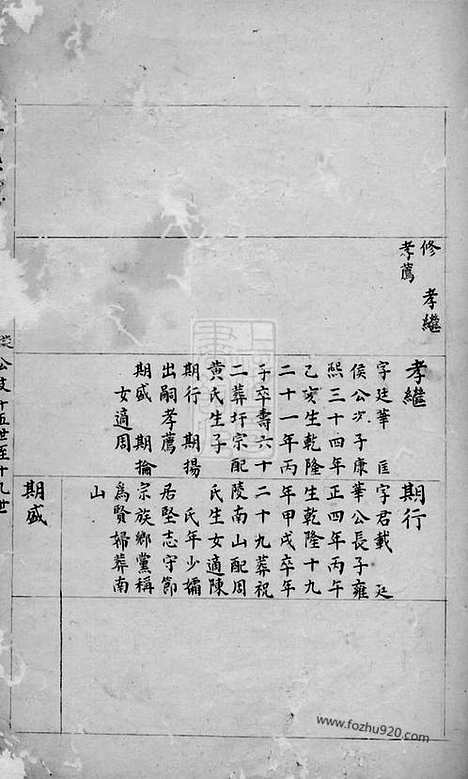 修 孝繼
孝鷹
孝繼
字廷華 匡
侯公次子康
熙三十四年
乙亥生乾隆
二十一年丙
子卒壽六十
二葬圩宗配
黄氏生子
期行 期揚
出嗣孝鷹
期盛 期掄
女適周
期行
字君載 廷
華公長子雍
正四年丙午
生乾隆十九
年甲戌卒年
二十九葬祝
陵南山配周
氏生女適陳
氏年少孀
居堅志守節
宗族鄉黨稱
爲賢婦葬南
山
期盛
公支十五世至十九世
www.fozhu920.com